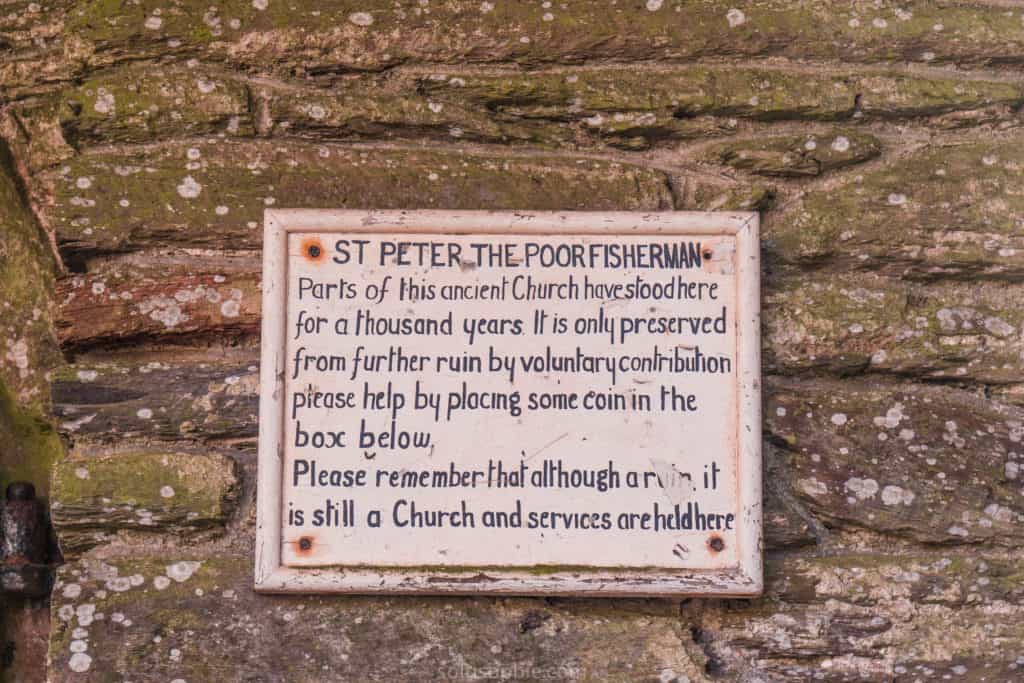 ST PETER THE POOR FISHERMAN
Parts of this ancient Church have stood here
for a thousand years. It is only preserved
from further ruin by voluntary contribution
please help by placing some coin in the
box below,
Please remember that although a ruin, it
is still a Church and services are held here
solosophie.com